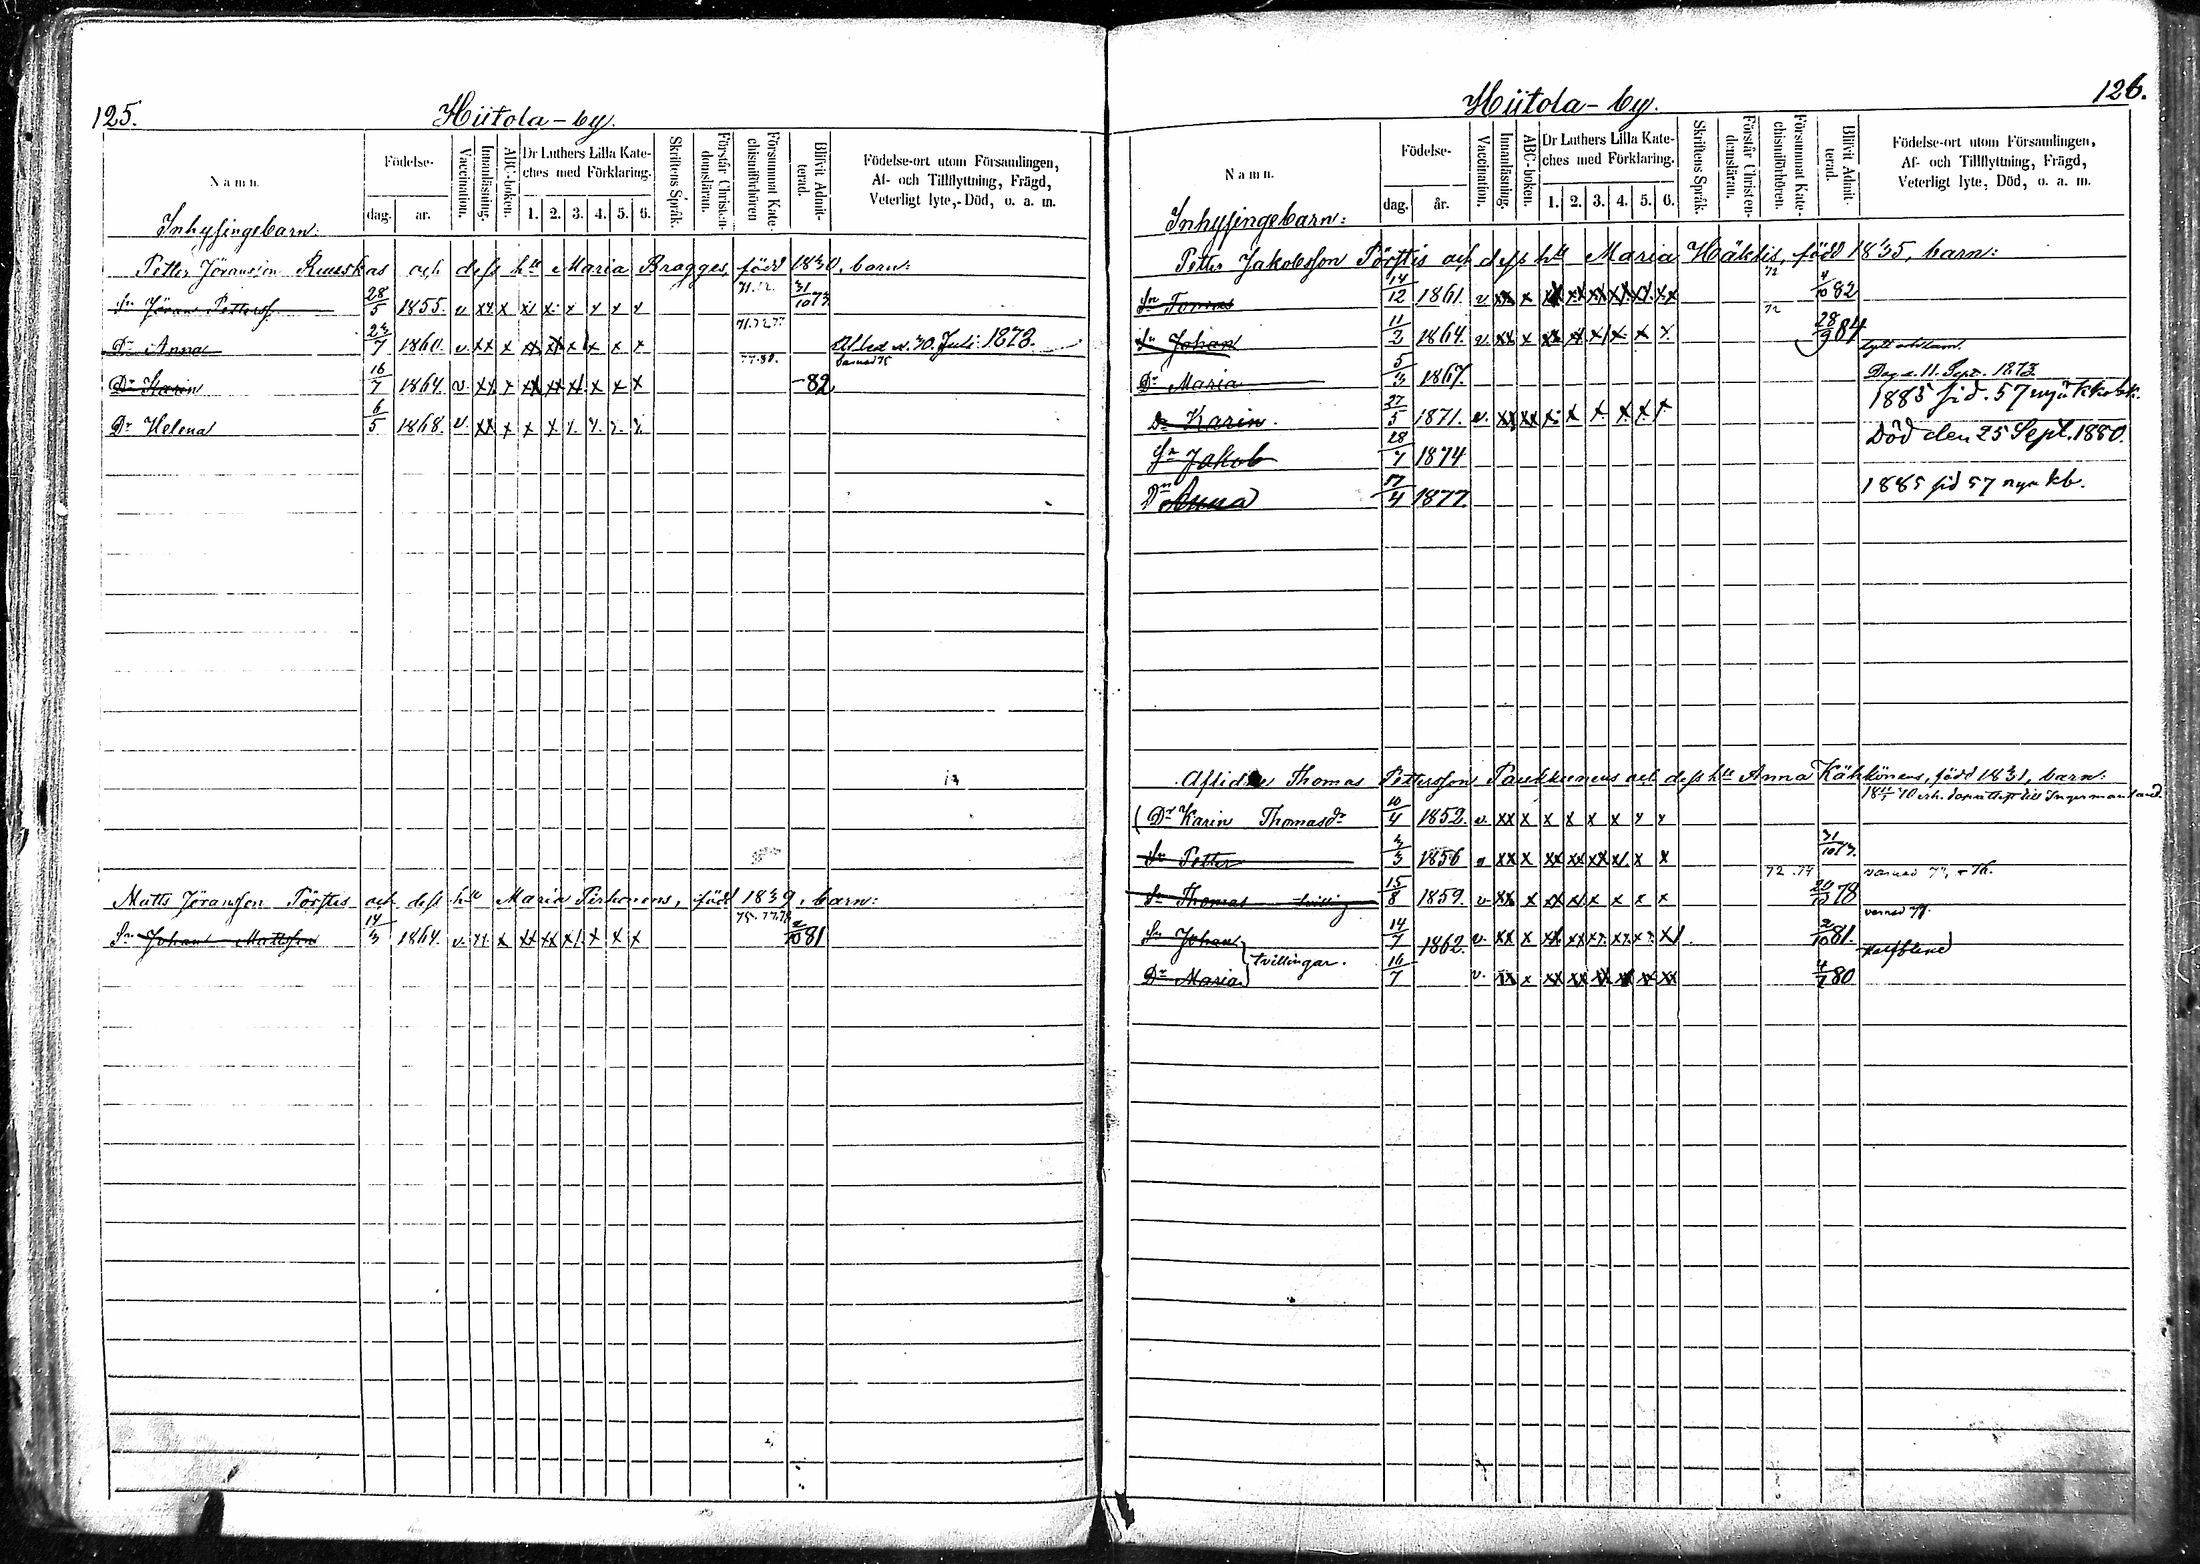 125.
Hiitola-by.
Namn.
Födelse-
dag. år.
Vaccination.
Innanläsning.
ABC-boken.
Dr Luthers Lilla Kate-
ches med Förklaring.
1. 2. 3. 4. 5. 6.
Skriftens Språk.
Förstår Christen-
domsläran.
Försummat Kate-
chismiförhören
Blifvit Admit-
terad.
Födelse-ort utom Församlingen,
Af- och Tillflyttning, Frägd,
Veterligt lyte, Död, o. a. m.
Inhysingebarn:
Petter Jöransson Ruuskas och dess hu Maria Bragges, född 1830, barn:
Sn Jöran Petterss. 28/5 1855. v xx x x x x x x x 71.72. 31/10 73
Dr Anna 23/7 1860. v xx x xx x x x x x 71.72.77 Afled d. 30. Juli 1873.
Dr Karin 16/7 1864. v. xx x xx xx x x x x 77.80. -82
Dr Helena 6/5 1868. v xx x x x x x x x
Matts Jöransson Pörstis och dess hu Maria Pirhonens, född 1839, barn:
Sn Johan Mattsson 14/3 1864. v. xx x xx xx x x x x 75.77.78 2/10 81
126.
Hiitola-by.
Namn.
Födelse-
dag. år.
Vaccination.
Innanläsning.
ABC-boken.
Dr Luthers Lilla Kate-
ches med Förklaring.
1. 2. 3. 4. 5. 6.
Skriftens Språk.
Förstår Christen-
domsläran.
Försummat Kate-
chismiförhören.
Blifvit Admit-
terad.
Födelse-ort utom Församlingen,
Af- och Tillflyttning, Frägd,
Veterligt lyte, Död, o. a. m.
Inhysingebarn:
Petter Jakobsson Pörstis och dess hu Maria Häklis, född 1835, barn:
Sn Tomas 14/12 1861. v xx x xx xx xx xx xx xx 72 4/10 82
Sn Johan 11/2 1864. v. xx x xx xx x x x x 72 28/9 84
Dr Maria 5/3 1867. Dog d. 11. Sept. 1873.
Dr Karin. 27/5 1871. v. xx xx x x x x x x 1885 sid. 57 nya kkobk.
Sn Jakob 28/7 1874 Död den 25 Sept. 1880.
Drn Anna 17/4 1877. 1885 sid 57 nya kb.
Aflidne Thomas Pettersson Paukkunens och dess hu Anna Käkkönens, född 1831, barn:
Dr Karin Thomasdr 10/4 1852. v. xx x x x x x x x till Ingermanland.
Sn Petter 1856 v xx x xx xx xx x x x 31/10 73.
Sn Thomas tvilling 15/8 1859. v xx x x x x x x x 72.77 varnad 20/10 78
Sn Johan 14/7 1862. v. xx x xx xx xx xx xx xx 2/10 81.
tvillingar.
Dr Maria 16/7 v. xx x xx xx xx xx xx xx 4/7 80 halfblind